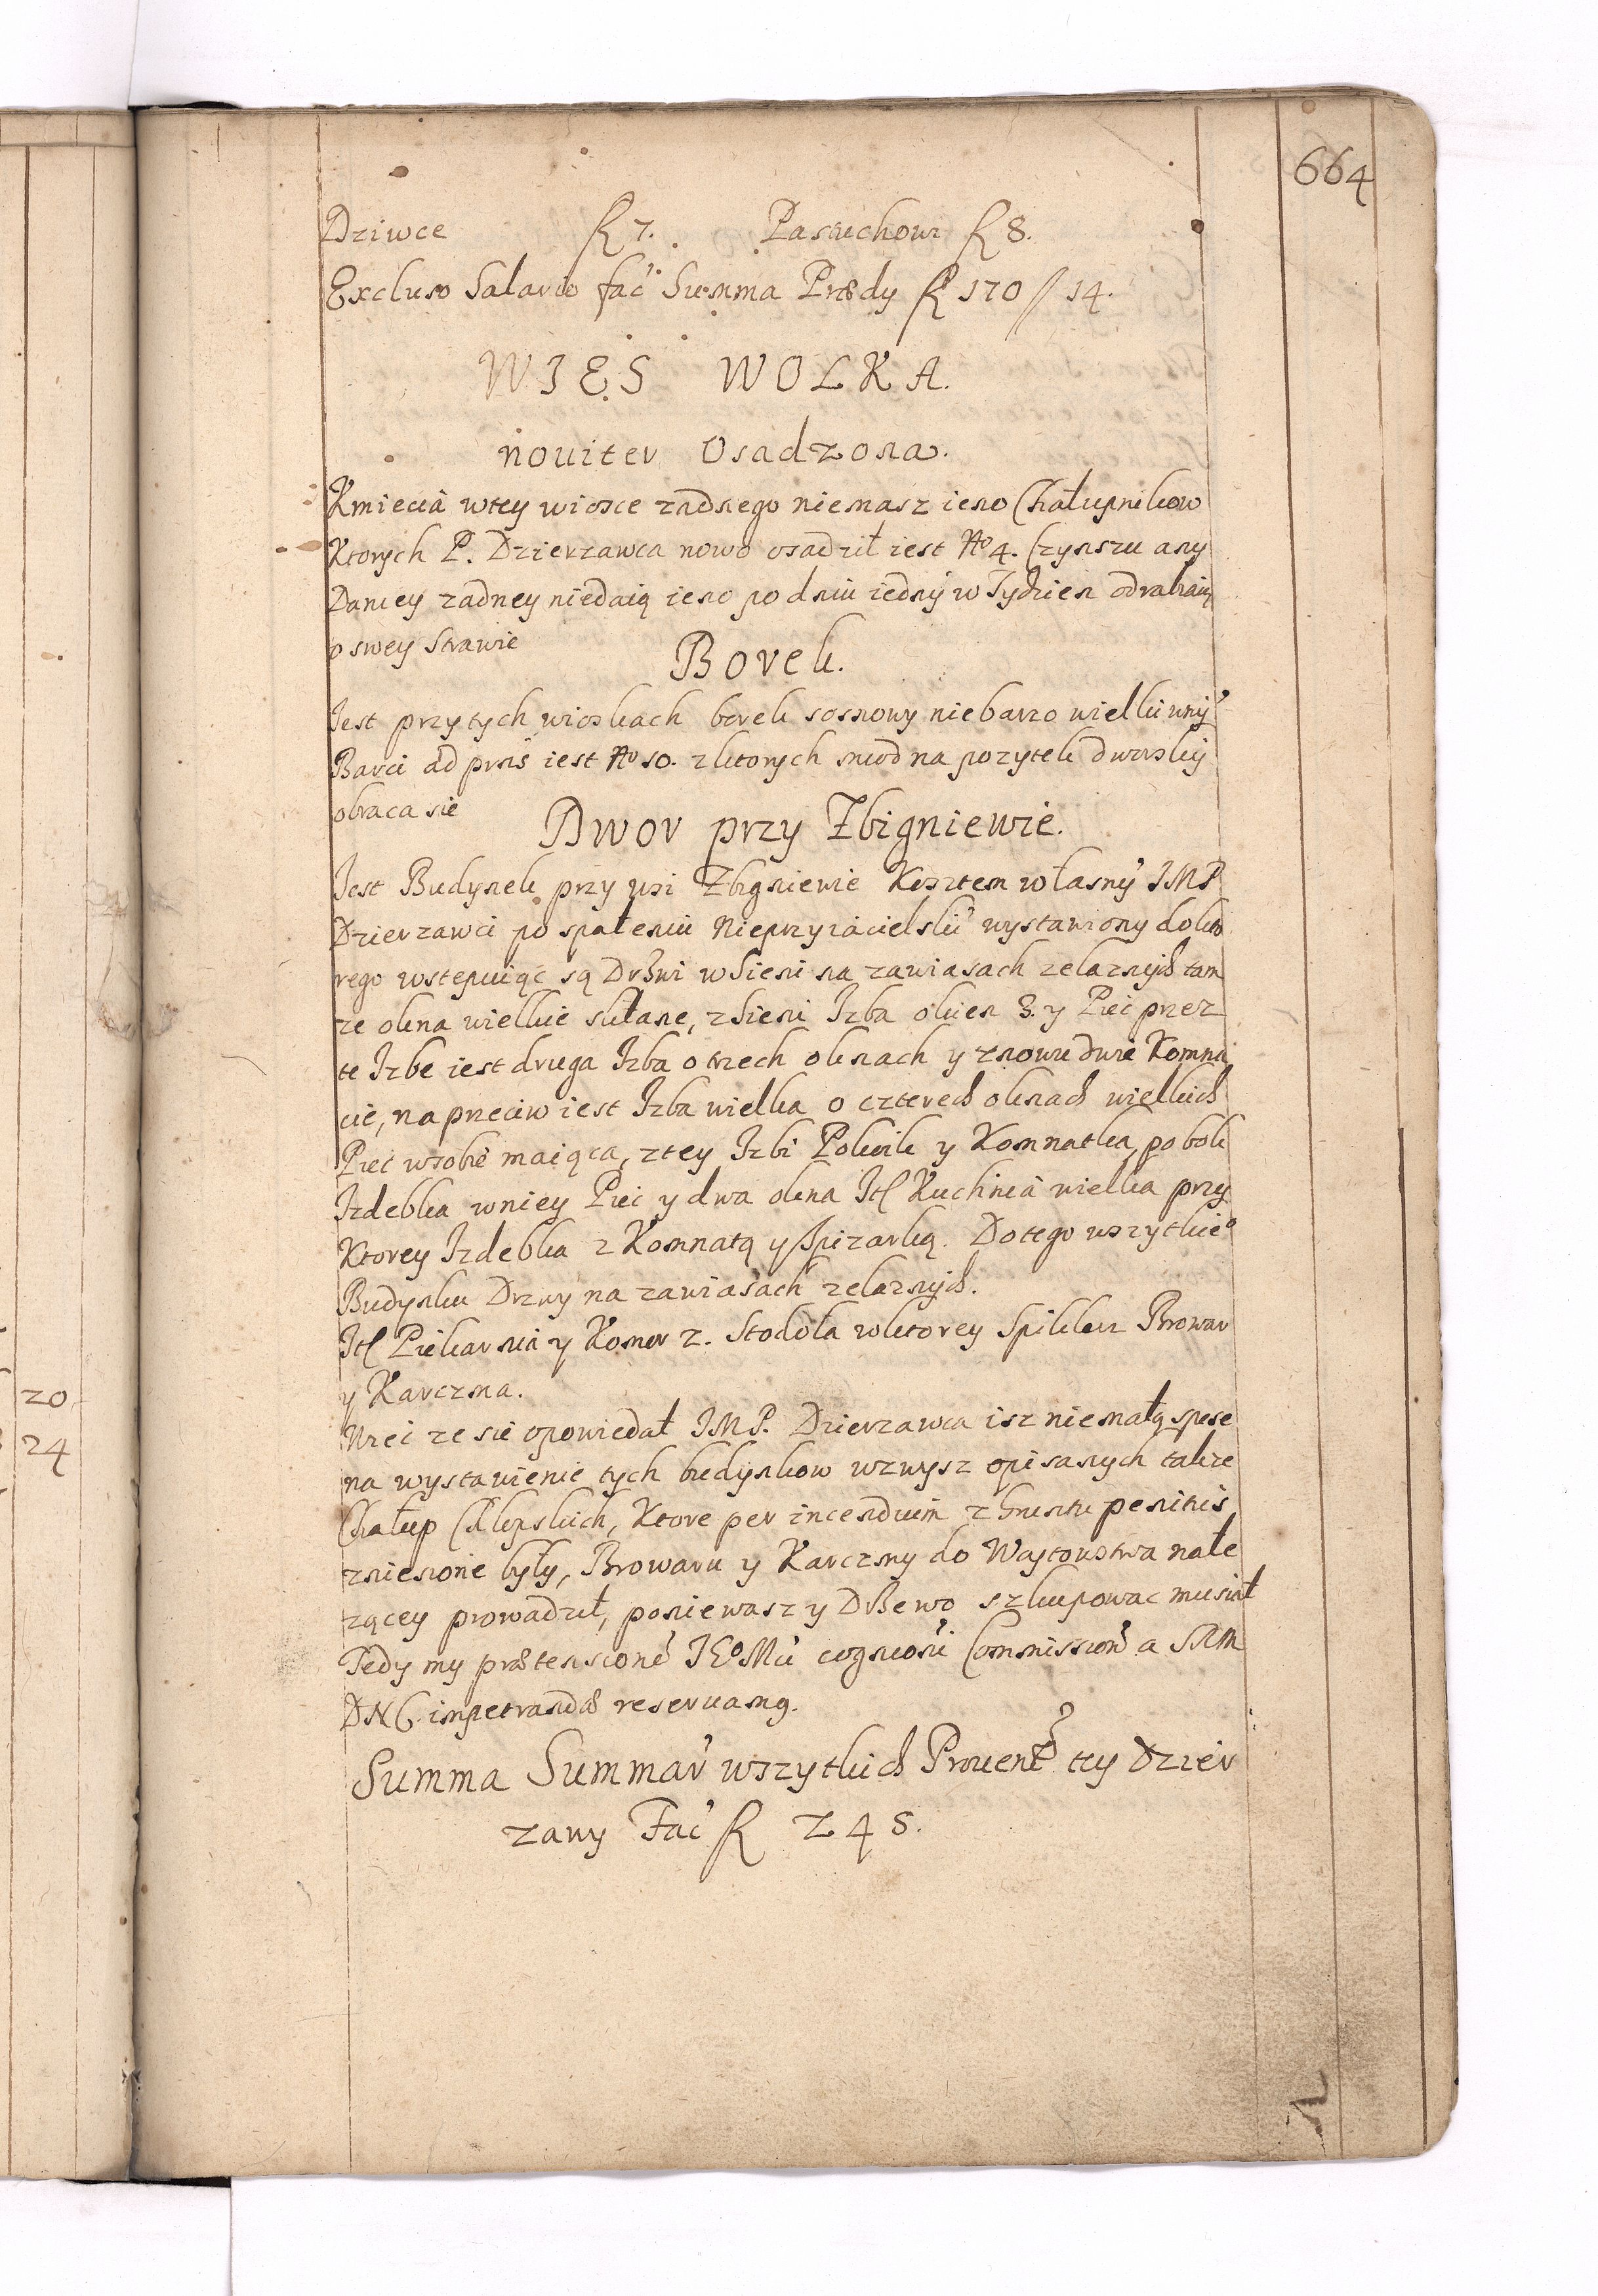 664
Dziwce fl 7. Pastuchowi fl 8.
Excluso Salario fac Summa Prædy fl 170 // 14.
WIĘS WOLKA.
nouiter Osadzona.
Kmiecia wtey wiosce zadnego niemasz ieno Chałupnikow
Ktorych P. Dzierzawca nowo osadził iest No 4. Czynszu any
Daniey zadney niedaią ieno po dniu iedny w Tydzien odrabiaią
o swey Strawie
Borek.
Iest przytych wioskach borek sosnowy niebarzo wielki wny
Barci ad prns iest No 10. zktorych miod na pozytek dworsky
obraca sie
Dwor przy Zbigniewie.
Iest Budynek przy wsi Zbigniewie Kosztem własny IMP
Dzierzawci po spaleniu Nieprzyiacielski wystawiony dokto
rego wstepuiąc są Drzwi wSieni na zawiasach zelaznych tam
ze okna wielkie sklane, zSieni Izba okien 3. y Piec przez
te Izbe iest druga Izba o trzech oknach y znowu dwie Komna
cie, naprzeciw iest Izba wielka o czterech oknach wielkich
Piec wsobie maiąca, ztey Izbi Pokoik y Komnatka, po bok
Izdebka wniey Piec y dwa okna Itl Kuchnia wielka przy
Ktorey Izdebka z Komnatą y spizarką. Dotego wszytkieo
Budynku Drzwy na zawiasach zelaznych.
Itl Piekarnia y Komor 2. Stodoła wktorey Spiklerz Browar
y Karczma.
Nrei ze sie opowiedał IMP. Dzierzawca isz niemałą spese
na wystawienie tych budynkow wzwysz opisanych takze
Chałup Chłopskich, Ktore per incendium z Gruntu penitus
zniesione były, Browaru y Karczmy do Woytowstwa nale
zącey prowadził, poniewasz y Drzewo szkupowac musiał
Tedy my prætensione IEoMci cognioni Commission a SRM
DNC impetrandæ reseruamq.
Summa Summar wszytkich Prouent tey Dzier
zawy Fac fl 245.
20
24